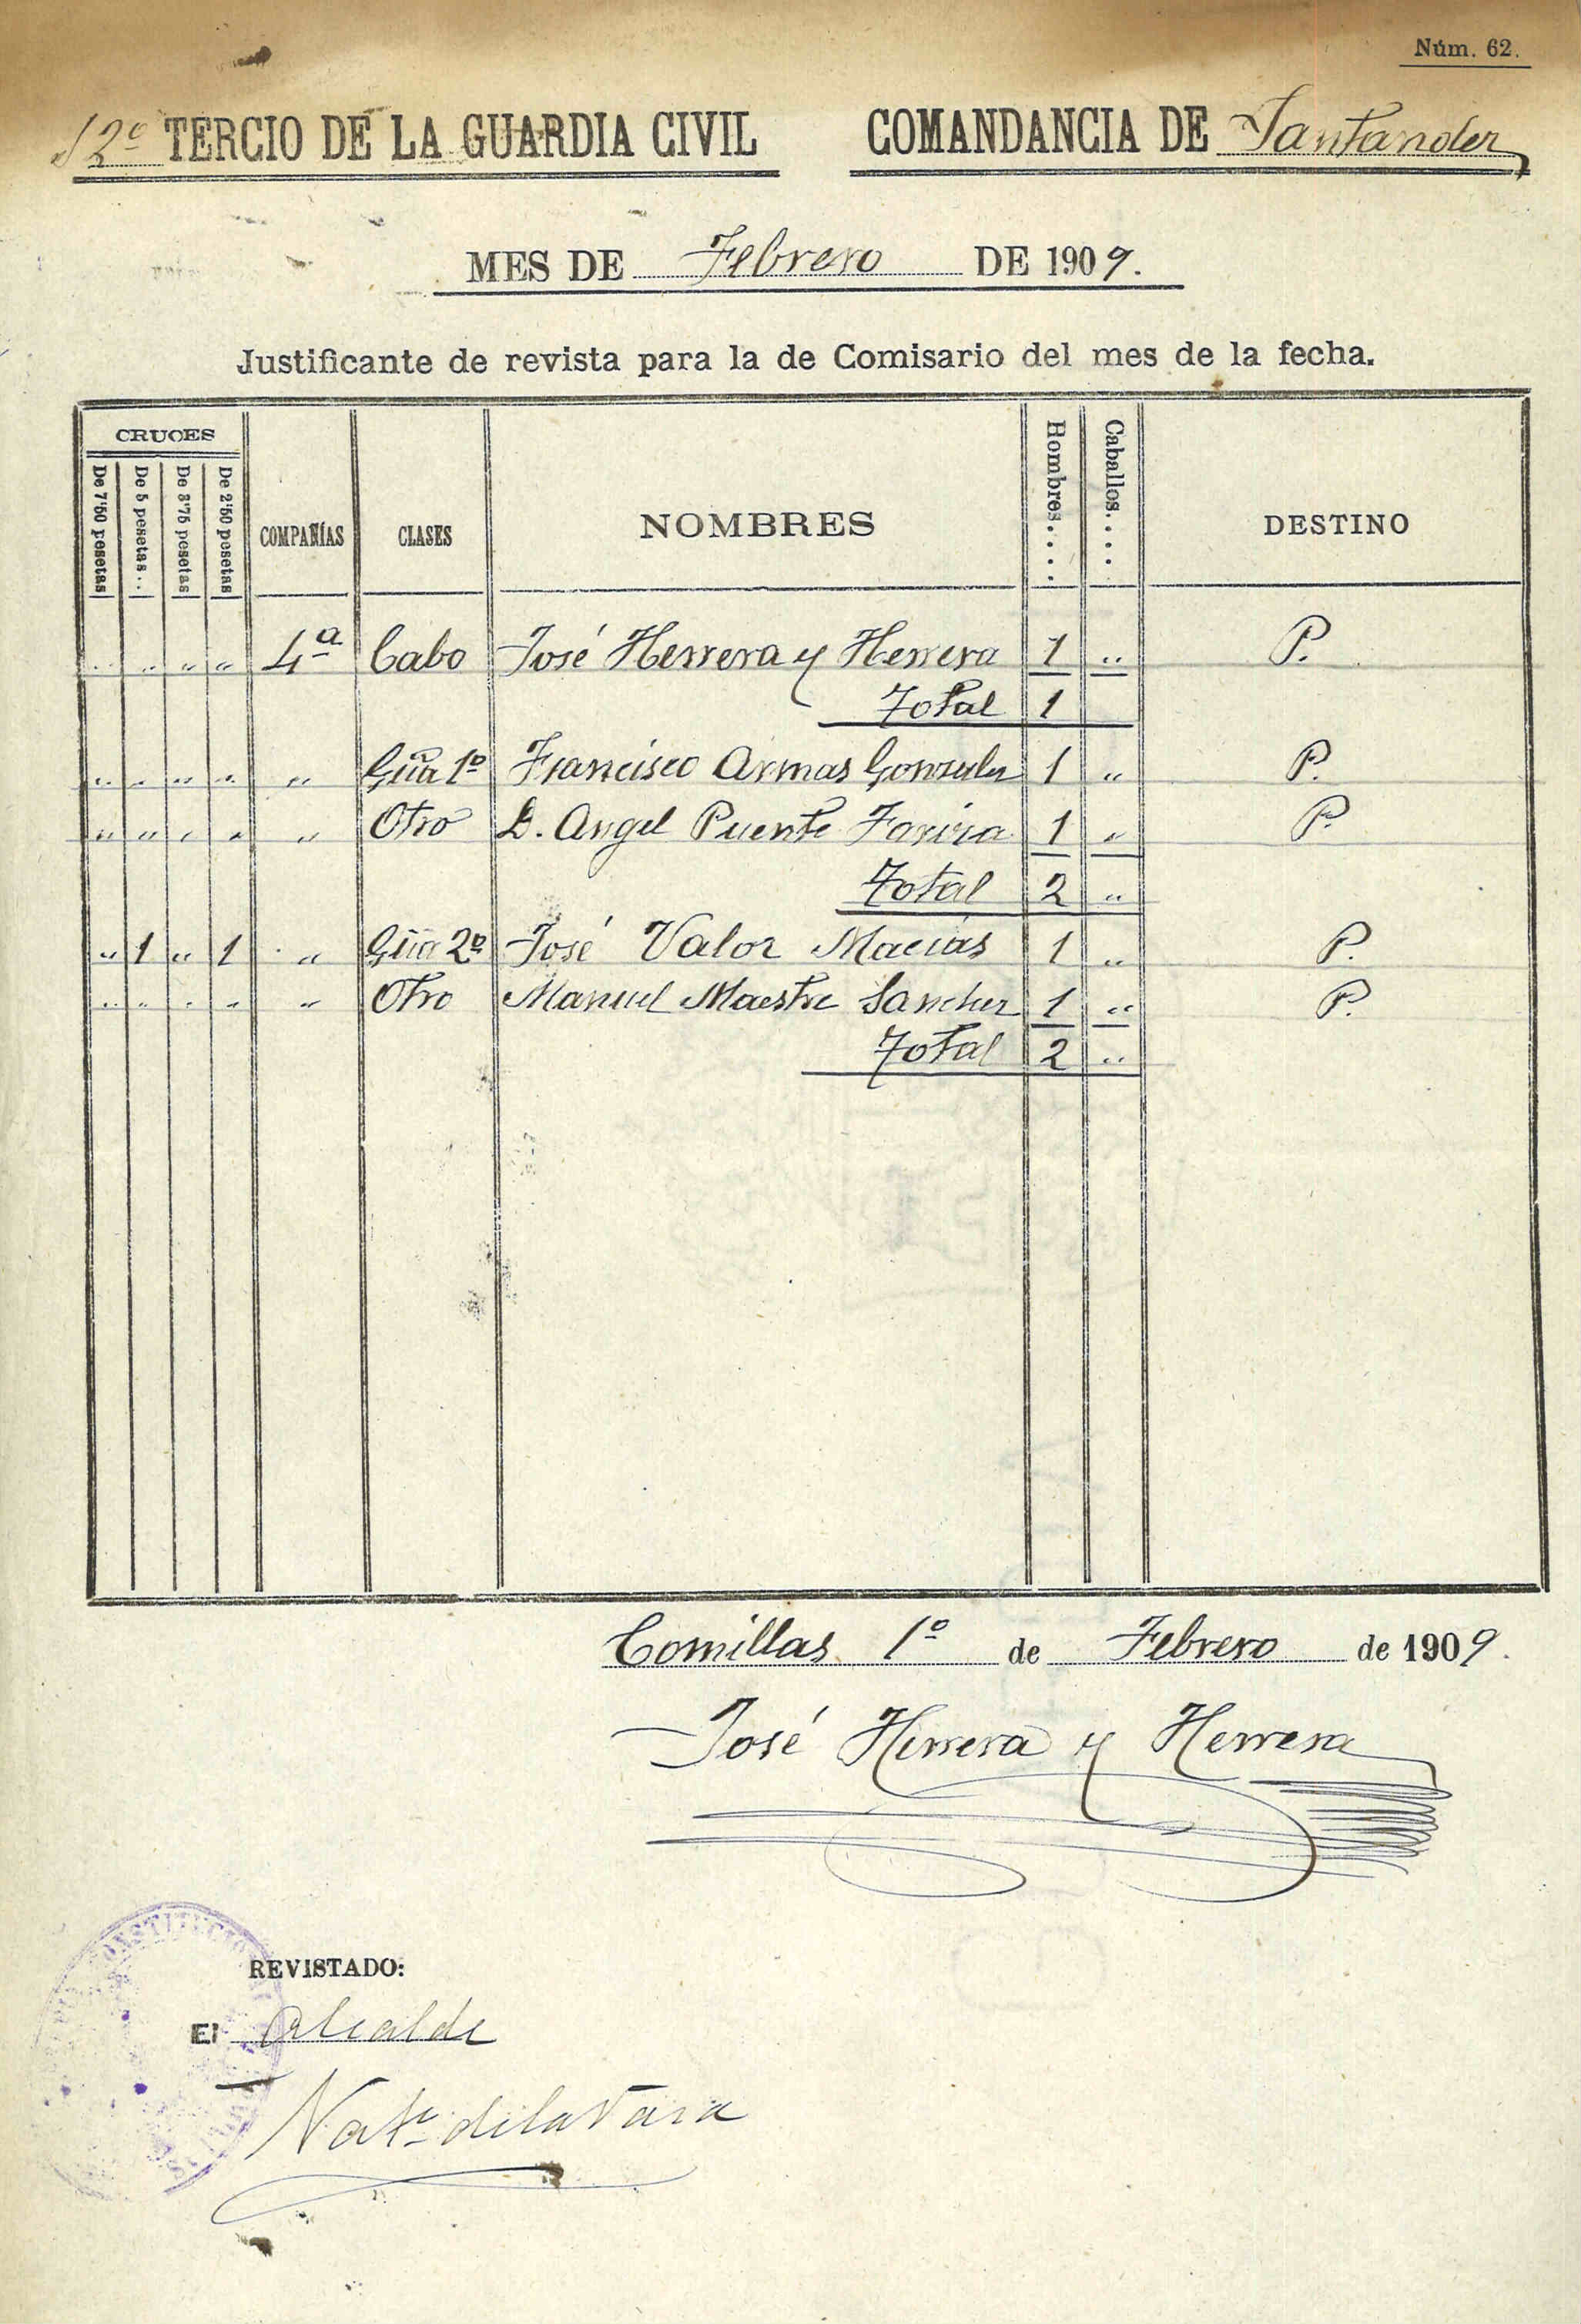 Núm. 62.
12º TERCIO DE LA GUARDIA CIVIL COMANDANCIA DE Santander
MES DE Febrero DE 1909.
Justificante de revista para la de Comisario del mes de la fecha.
CRUCES
De 7'50 pesetas De 5 pesetas.. De 3'75 pesetas De 2'50 pesetas COMPAÑÍAS CLASES NOMBRES Hombres.... Caballos.... DESTINO
" " " " 4ª Cabo José Herrera y Herrera 1 " P.
Total 1
" " " " " Gúia 1º Francisco Armas Gonzalez 1 " P.
" " " " " Otro D. Angel Puente 1 " P.
Total 2 "
" 1 " 1 " Gúia 2º José Valor Macías 1 " P.
" " " " " Otro Manuel Maestre Sanchez 1 " P.
Total 2 "
Comillas 1º de Febrero de 1909.
José Herrera y Herrera
REVISTADO:
El Alcalde